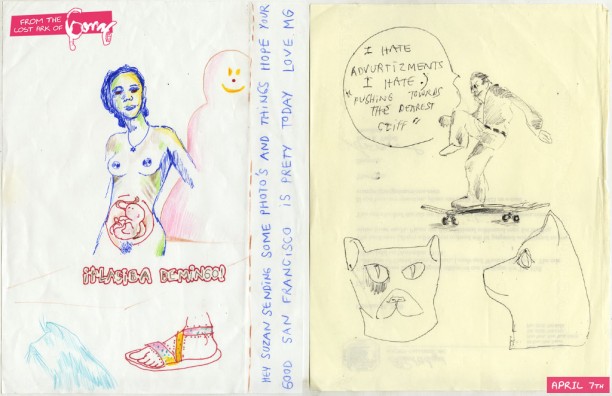 FROM THE
LOST ARK OF
HEY SUZAN SENDING SOME PHOTO'S AND THINGS HOPE YOUR
GOOD SAN FRANCISCO IS PRETY TODAY LOVE MG
I HATE
ADVURTIZMENTS
I HATE
"PUSHING TOWARDS
THE NEAREST
CLIFF"
APRIL 7TH